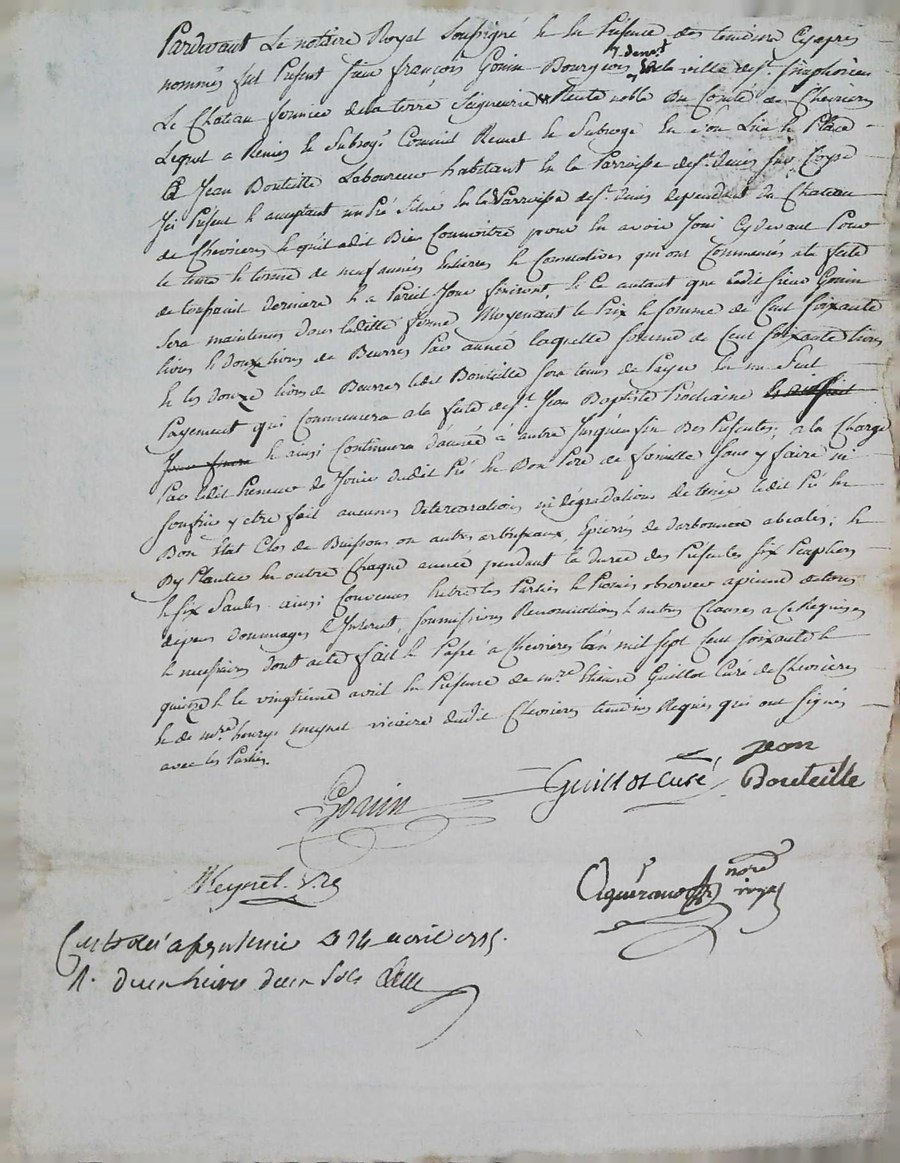 Pardevant Le notaire Royal Soussigné Et En Présence des temoins Cyapres
nommés fut Présent sieur françois Gonin Bourgeois demt en la ville de st. simphorien
Le Chateau fermier dela terre Seigneurie & rente noble du Comté de Chevrieres
Lequel a Remis et Subrogé Comme il Remet et Subroge En son Lieu et Place
a Jean Bouteille Laboureur habitant En la Parroisse de st. Denis sur Coyse
Jci Présent et acceptant un Pré situé En la Parroisse de st. Denis dependant du Chateau
de Chevrieres et qu'il a dit Bien Connoitre pour En avoir Joui Cydevant Pour
le tems et terme de neuf années Entieres et Consecutives qui ont Commencés a la fete
de toussaint derniere et a Pareil Jour finiront, si tant autant que ledit sieur Gonin
sera maintenu dans laditte ferme, Moyenant le Prix et somme de Cent soixante
livres et douze livres de Beurres Par année laquelle somme de Cent soixante livres
et les douze livres de Beurres ledit Bouteille sera tenu de Payer En un seul
Payement qui Commencera a la fete de st. Jean Baptiste Prochaine
et ainsi Continuera d'année à autre Jusqu'en fin Des Présentes; a la Charge
Par ledit Preneur de Jouir dudit Pré En Bon Pere de famille sans y faire ni
souffrir y etre fait aucunes deteriorations ni dégradations de tenir ledit Pré En
Bon Etat Clos de Buissons ou autres arbrisseaux, Epierrés de darbonnieres abialés; et
D'y Planter En outre Chaque année pendant la durée des Présentes six Peupliers
et six Saules. ainsi Convenus Entre les Parties et Promis observer a peine de tous
depens Dommages & Interet, soumissions Renonciations & autres Clauses a ce Requises
et necessaires dont acte fait et Passé a Chevrieres L'an mil sept Cent soixante et
quinze et le vingtieme avril En Présence de mre. Etienne Guillot Curé de Chevrieres
et de mre. henry meynet vicaire dudit Chevrieres temoins Requis qui ont signés
avec les Parties.
Gonin
Guillot Curé
Jean
Bouteille
Meynet. Vre
nore
royal
R. d